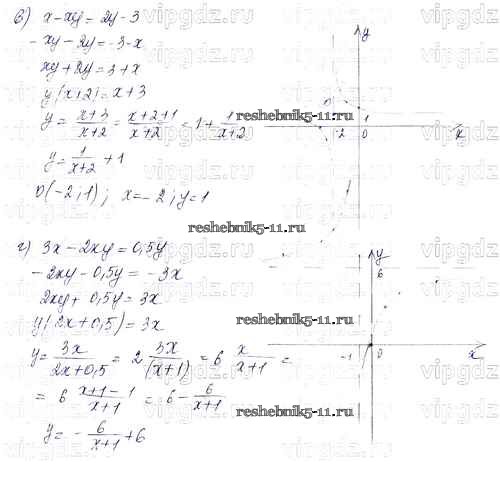 в) x-xy = 2y-3
-xy-2y=-3-x
xy+2y=3+x
y(x+2)=x+3
y = \frac{x+3}{x+2} = \frac{x+2+1}{x+2} = 1+\frac{1}{x+2}
y = \frac{1}{x+2} +1
O(-2;1); x=-2; y=1
y
1
-2
0
x
г) 3x-2xy=0,5y
-2xy-0,5y=-3x
2xy+0,5y=3x
y(2x+0,5)=3x
y = \frac{3x}{2x+0,5} = 2 \frac{3x}{(x+1)} = 6 \frac{x}{x+1} =
= 6 \frac{x+1-1}{x+1} = 6-\frac{6}{x+1}
y = -\frac{6}{x+1}+6
y
6
-1
0
x
reshebnik5-11.ru
reshebnik5-11.ru
reshebnik5-11.ru
reshebnik5-11.ru
vipgdz.ru